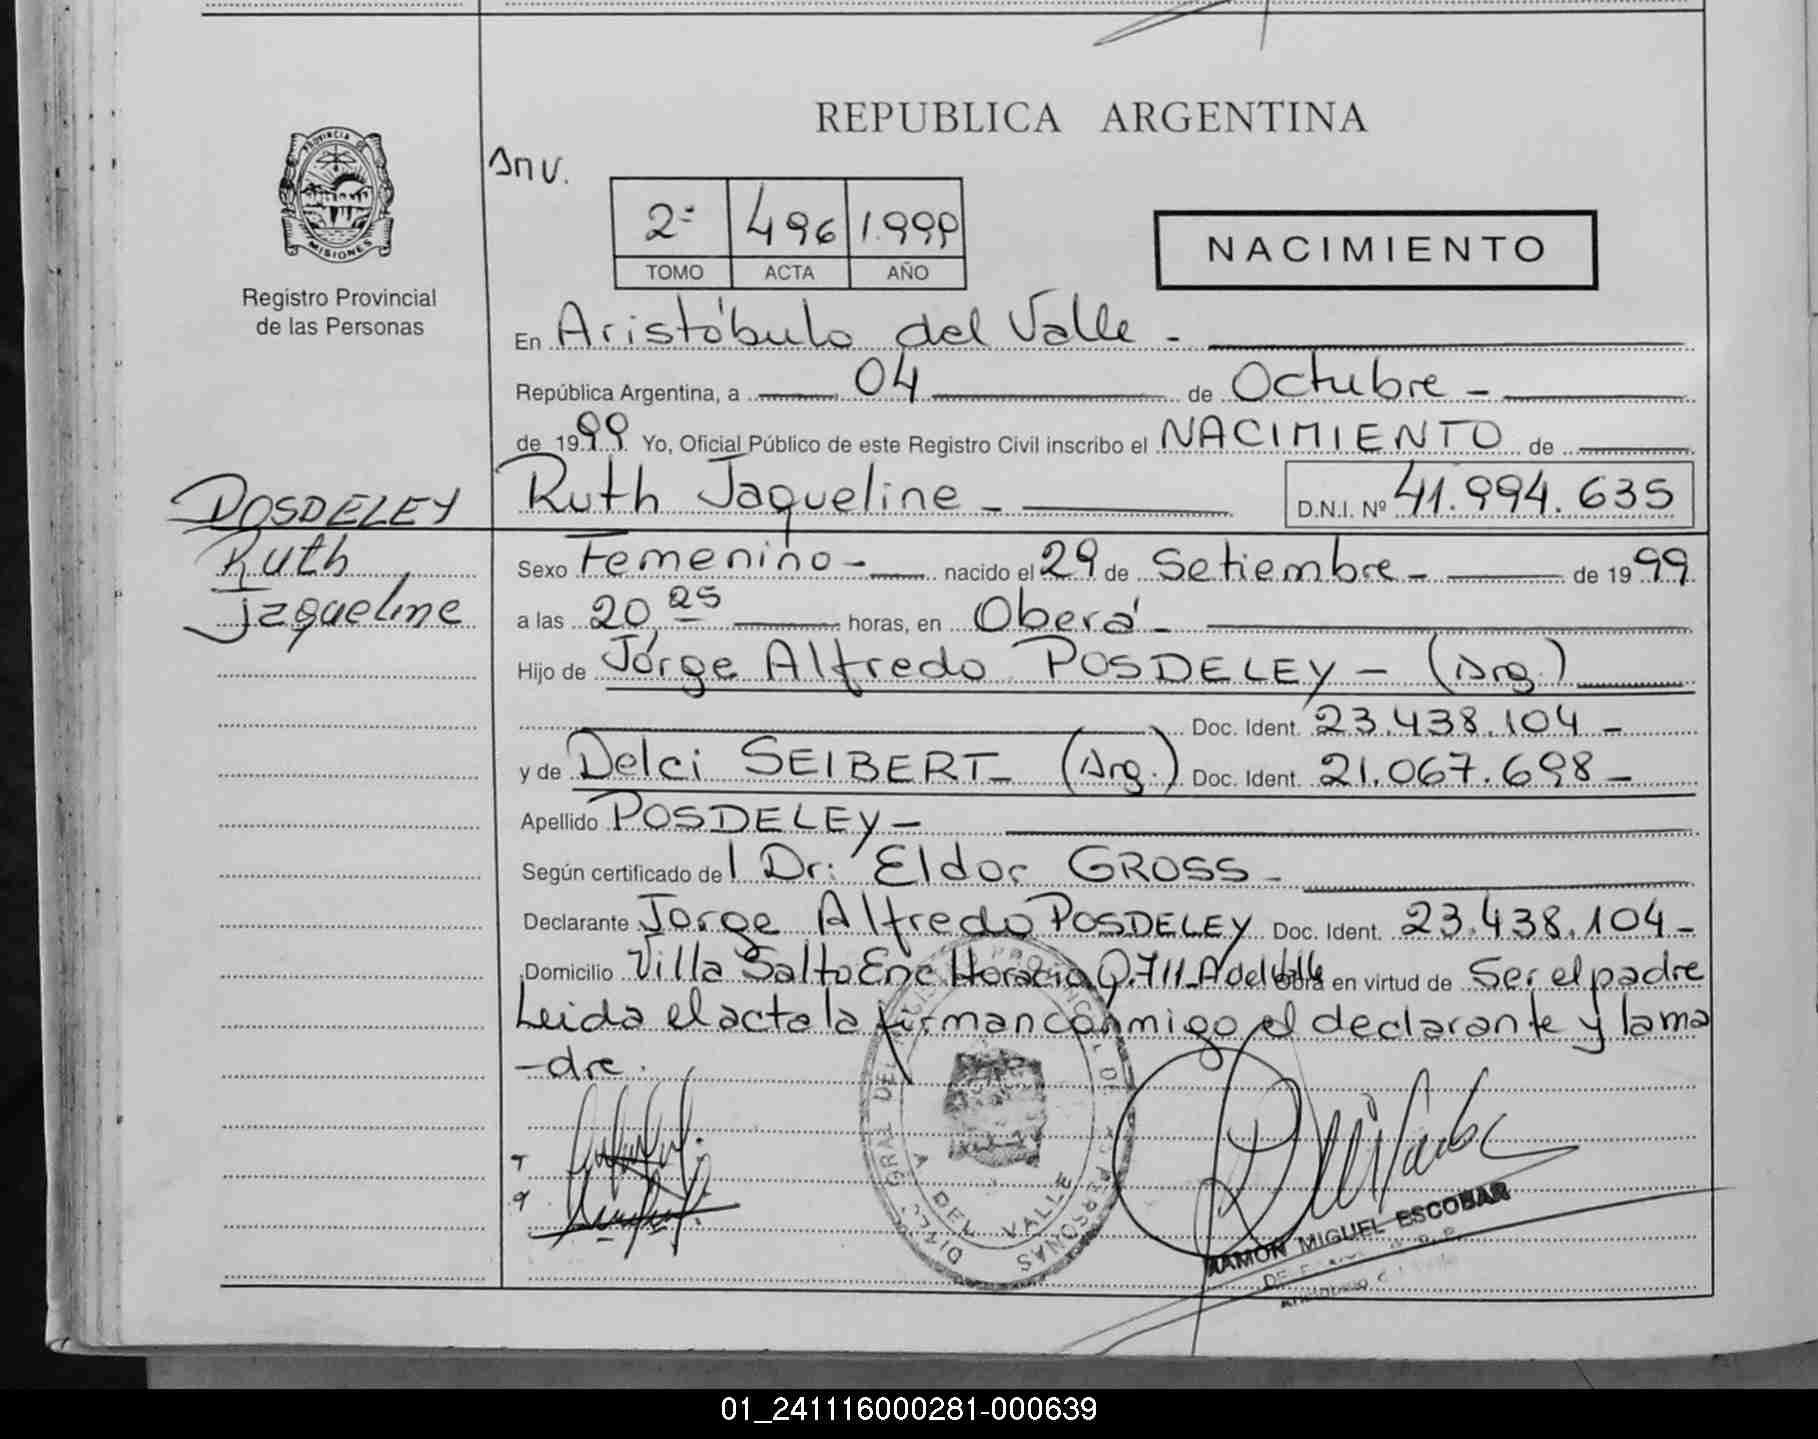 REPUBLICA ARGENTINA
PROVINCIA DE
MISIONES
Registro Provincial
de las Personas
Inv.
2ª 496 1.999
TOMO ACTA AÑO
NACIMIENTO
En Aristóbulo del Valle -
República Argentina, a 04 de Octubre -
de 1999 Yo, Oficial Público de este Registro Civil inscribo el NACIMIENTO de
POSDELEY
Ruth
Jaqueline
Ruth Jaqueline - D.N.I. Nº 41.994.635
Sexo Femenino - nacido el 29 de Setiembre - de 1999
a las 20,25 horas, en Oberá -
Hijo de Jorge Alfredo POSDELEY - (Arg.)
Doc. Ident. 23.438.104 -
y de Delci SEIBERT - (Arg.) Doc. Ident. 21.067.698 -
Apellido POSDELEY -
Según certificado del Dr: Eldor GROSS -
Declarante Jorge Alfredo POSDELEY Doc. Ident. 23.438.104 -
Domicilio Villa Salto Enc. Horacio Q. 711 - A del Valle obra en virtud de Ser el padre
Leida el acta la firman conmigo el declarante y la ma
- dre.
DEL VALLE
PERSONAS
RAMON MIGUEL ESCOBAR
01_241116000281-000639